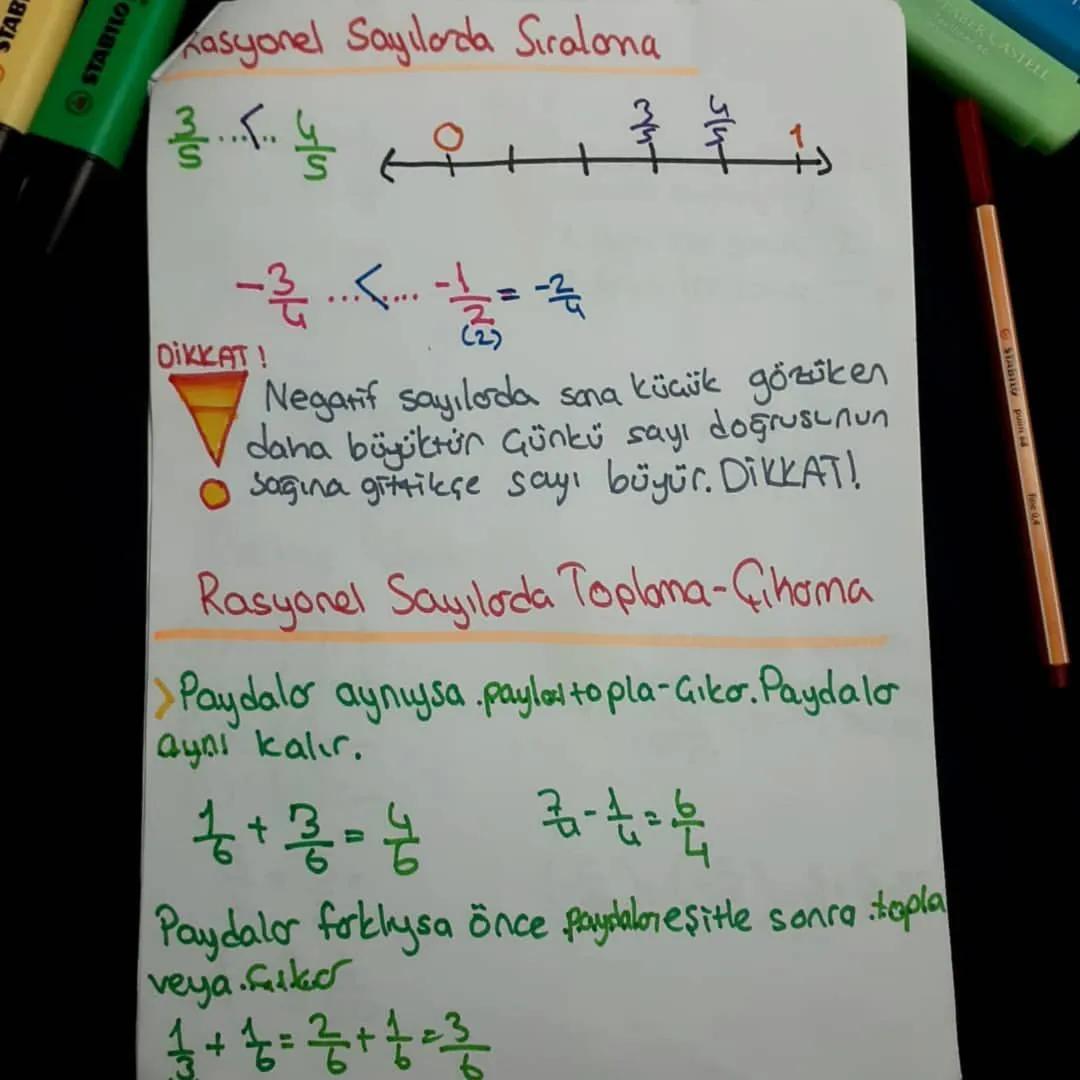 Rasyonel Sayılarda Sıralama
3/5 ..<.. 4/5
0 3/5 4/5 1
-3/4 ...<.... -1/2 = -2/4
(2)
DİKKAT!
Negatif sayılarda sana küçük gözüken
daha büyüktür Çünkü sayı doğrusunun
sağına gittikçe sayı büyür. DİKKAT!
Rasyonel Sayılarda Toplama-Çıkarma
Paydalar aynıysa payları topla-Çıkar. Paydalar
aynı kalır.
1/6 + 3/6 = 4/6 7/4 - 1/4 = 6/4
Paydalar farklıysa önce paydaları eşitle sonra topla
veya Çıkar
1/3 + 1/6 = 2/6 + 1/6 = 3/6
STABILO
STABILO
FABER CASTELL
STABILO point 88 fine 0,4